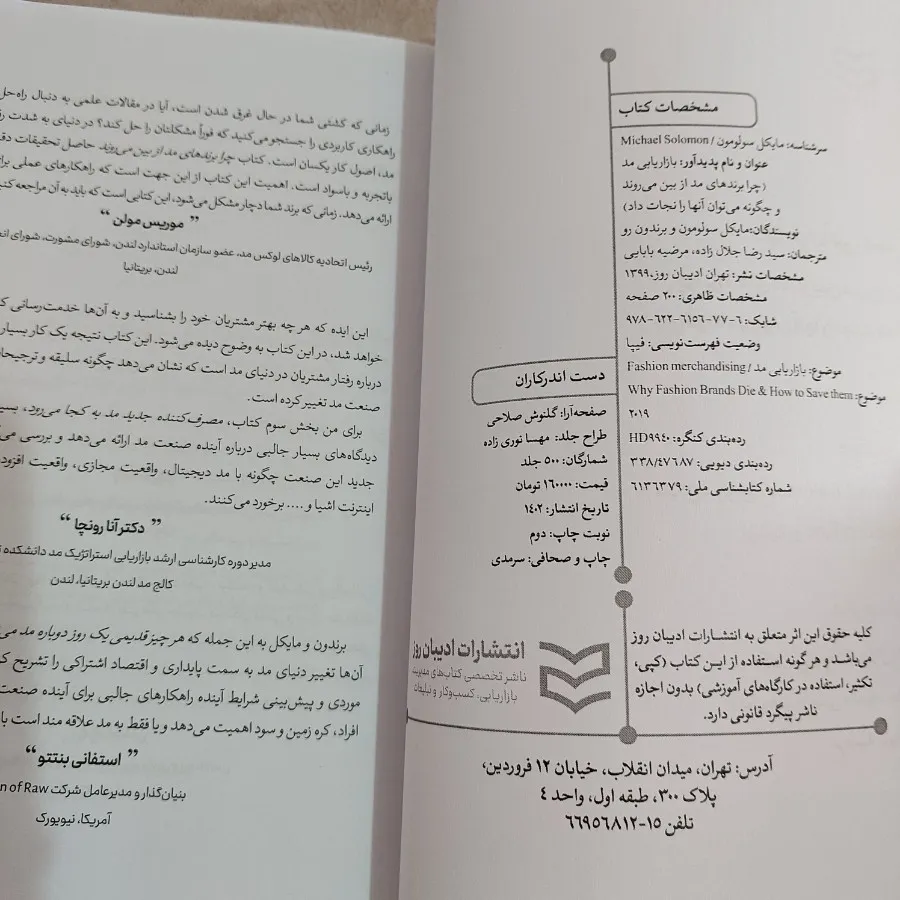 مشخصات کتاب
سرشناسه: مایکل سولومون / Michael Solomon
عنوان و نام پدیدآور: بازاریابی مد
(چرا برندهای مد از بین می‌روند
و چگونه می‌توان آنها را نجات داد)
نویسندگان: مایکل سولومون و برندون رو
مترجمان: سید رضا جلال زاده، مرضیه بابایی
مشخصات نشر: تهران ادیبان روز، ۱۳۹۹
مشخصات ظاهری: ۲۰۰ صفحه
شابک: ۶-۷۷-۶۱۵۶-۶۲۲-۹۷۸
وضعیت فهرست‌نویسی: فیپا
موضوع: بازاریابی مد / Fashion merchandising
موضوع: Why Fashion Brands Die & How to Save them
۲۰۱۹
رده‌بندی کنگره: HD۹۹۴۰
رده‌بندی دیویی: ۳۳۸/۴۷۶۸۷
شماره کتابشناسی ملی: ۶۱۳۶۳۷۹
دست اندرکاران
صفحه‌آرا: گلنوش صلاحی
طراح جلد: مهسا نوری زاده
شمارگان: ۵۰۰ جلد
قیمت: ۱۶۰۰۰۰ تومان
تاریخ انتشار: ۱۴۰۲
نوبت چاپ: دوم
چاپ و صحافی: سرمدی
کلیه حقوق این اثر متعلق به انتشارات ادیبان روز
می‌باشد و هرگونه استفاده از ایـن کتاب (کپی،
تکثیر، استفاده در کارگاه‌های آموزشی) بدون اجازه
ناشر پیگرد قانونی دارد.
انتشارات ادیبان روز
ناشر تخصصی کتاب‌های مدیریت
بازاریابی، کسب‌وکار و تبلیغات
آدرس: تهران، میدان انقلاب، خیابان ۱۲ فروردین،
پلاک ۳۰۰، طبقه اول، واحد ۴
تلفن ۱۵-۶۶۹۵۶۸۱۲
زمانی که کشتی شما در حال غرق شدن است، آیا در مقالات علمی به دنبال راه‌حل
راهکاری کاربردی را جستجو می‌کنید که فوراً مشکلتان را حل کند؟ در دنیای به شدت
مد، اصول کار یکسان است. کتاب چرا برندهای مد از بین می‌روند حاصل تحقیقات
باتجربه و باسواد است. اهمیت این کتاب از این جهت است که راهکارهای عملی
ارائه می‌دهد. زمانی که برند شما دچار مشکل می‌شود، این کتابی است که باید به آن مراجعه
” موریس مولن “
رئیس اتحادیه کالاهای لوکس مد، عضو سازمان استاندارد لندن، شورای مشورت، شورای
لندن، بریتانیا
این ایده که هر چه بهتر مشتریان خود را بشناسید و به آن‌ها خدمت‌رسانی
خواهد شد، در این کتاب به وضوح دیده می‌شود. این کتاب نتیجه یک کار بسیار
درباره رفتار مشتریان در دنیای مد است که نشان می‌دهد چگونه سلیقه و ترجیحات
صنعت مد تغییر کرده است.
برای من بخش سوم کتاب، مصرف‌کننده جدید مد به کجا می‌رود،
دیدگاه‌های بسیار جالبی درباره آینده صنعت مد ارائه می‌دهد و بررسی
جدید این صنعت چگونه با مد دیجیتال، واقعیت مجازی، واقعیت
اینترنت اشیا و .... برخورد می‌کنند.
” دکتر آنا رونچا “
مدیر دوره کارشناسی ارشد بازاریابی استراتژیک مد دانشکده
کالج مد لندن بریتانیا، لندن
برندون و مایکل به این جمله که هر چیز قدیمی یک روز دوباره مد
آن‌ها تغییر دنیای مد به سمت پایداری و اقتصاد اشتراکی را تشریح
موردی و پیش‌بینی شرایط آینده راهکارهای جالبی برای آینده صنعت
افراد، کره زمین و سود اهمیت می‌دهد و یا فقط به مد علاقه مند است
” استفانی بنتتو “
بنیان‌گذار و مدیرعامل شرکت of Raw
آمریکا، نیویورک